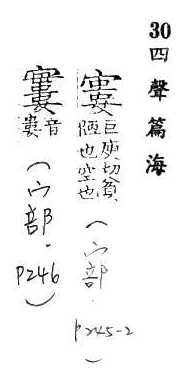 30 四聲篇海
巨庾切貧陋也空也（宀部．P245-2）
音（宀部．P246）